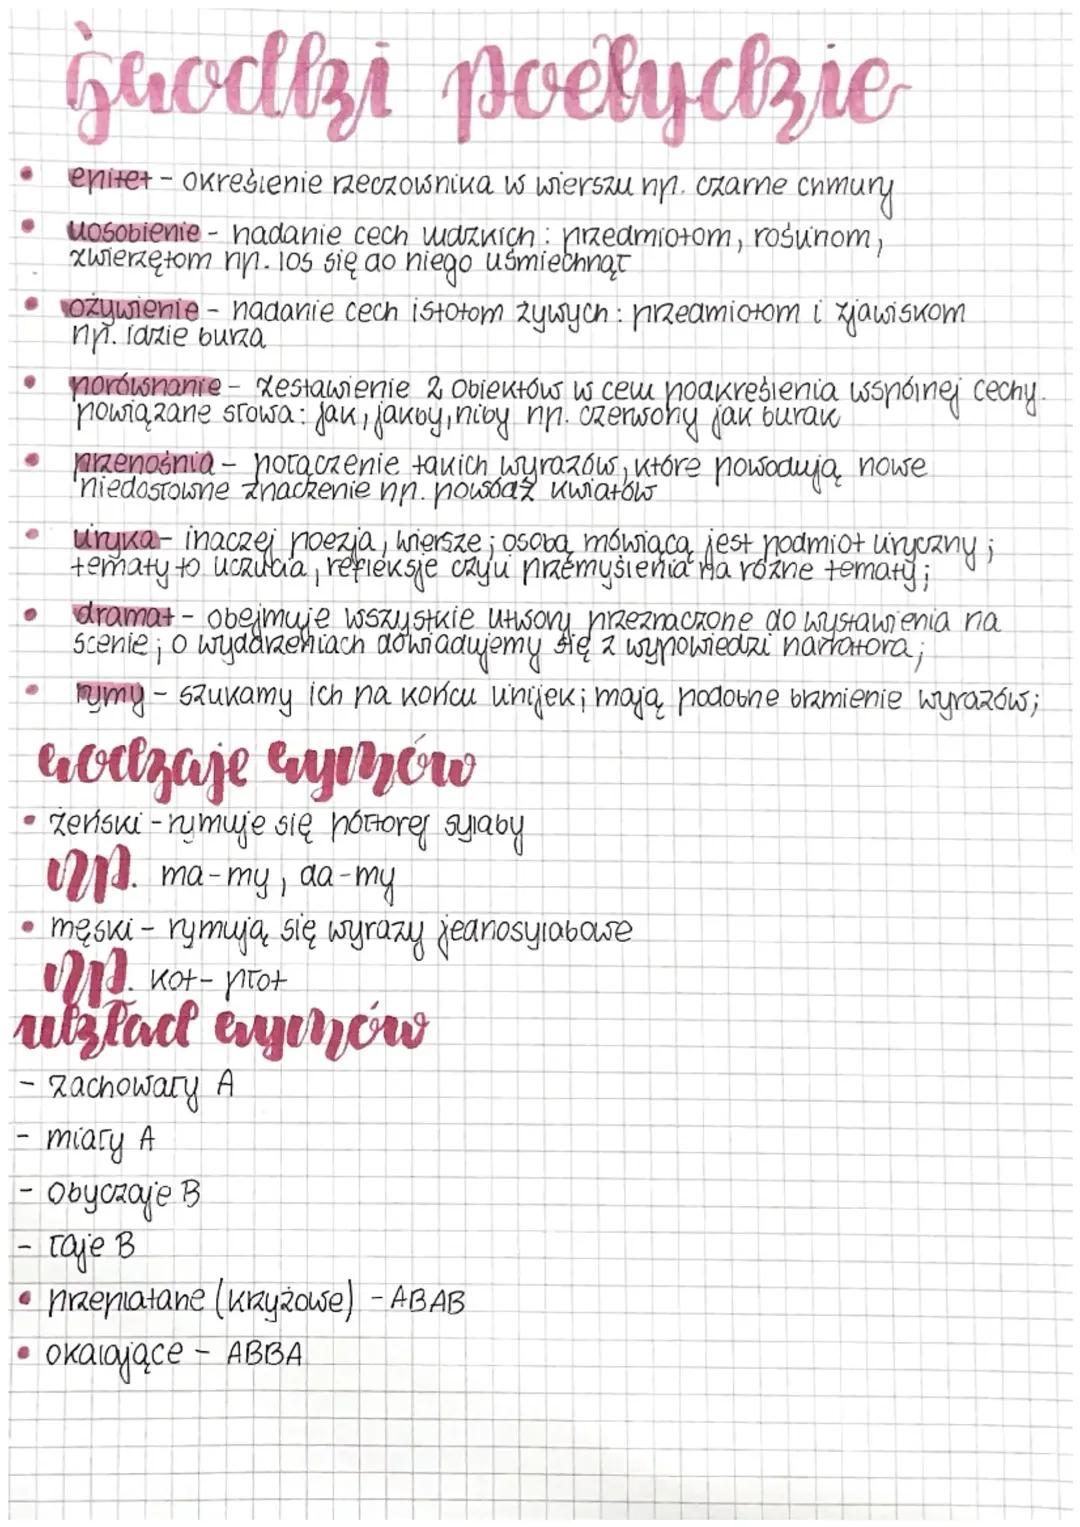 środki poetyckie
• epitet - określenie rzeczownika w wierszu np. czarne chmury
• uosobienie - nadanie cech ludzkich: przedmiotom, roślinom,
zwierzętom np. los się do niego uśmiechnął
• ożywienie - nadanie cech istotom żywych: przedmiotom i zjawiskom
np. idzie burza
• porównanie - zestawienie 2 obiektów w celu podkreślenia wspólnej cechy.
powiązane słowa: jak, jakby, niby np. czerwony jak burak
• przenośnia - połączenie takich wyrazów, które powodują nowe
niedosłowne znaczenie np. powódź kwiatów
• liryka - inaczej poezja, wiersze; osobą mówiącą jest podmiot liryczny;
tematy to uczucia, refleksje czyli przemyślenia na różne tematy;
• dramat - obejmuje wszystkie utwory przeznaczone do wystawienia na
scenie; o wydarzeniach dowiadujemy się z wypowiedzi narratora;
• rymy - szukamy ich na końcu linijek; mają podobne brzmienie wyrazów;
rodzaje rymów
• żeński - rymuje się półtorej sylaby
np. ma-my, da-my
• męski - rymują się wyrazy jednosylabowe
np. kot - płot
układ rymów
- zachowały A
- miały A
- obyczaje B
- łaje B
• przeplatane (krzyżowe) - ABAB
• okalające - ABBA